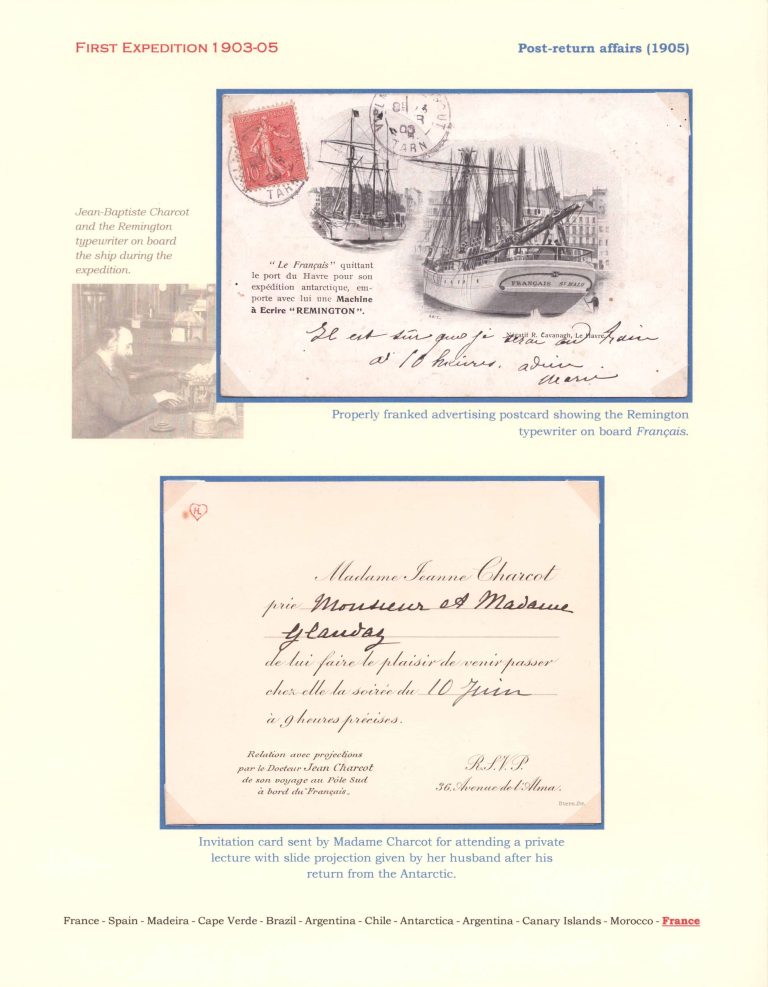 FIRST EXPEDITION 1903-05
Post-return affairs (1905)
TARN
TARN
10
Jean-Baptiste Charcot
and the Remington
typewriter on board
the ship during the
expedition.
“ Le Français ” quittant
le port du Havre pour son
expédition antarctique, em-
porte avec lui une Machine
à Ecrire “REMINGTON”.
FRANÇAIS ST MALO
Négatif R. Cavanagh, Le Havre
Il est sûr que je serai au train
à 10 heures. adieu
Marie
Properly franked advertising postcard showing the Remington
typewriter on board Français.
Madame Jeanne Charcot
prie Monsieur et Madame
Glandaz
de lui faire le plaisir de venir passer
chez elle la soirée du 10 Juin
à 9 heures précises.
Relation avec projections
par le Docteur Jean Charcot
de son voyage au Pôle Sud
à bord du “Français„
R.S.V.P.
36, Avenue de l'Alma.
Stern, Gr.
Invitation card sent by Madame Charcot for attending a private
lecture with slide projection given by her husband after his
return from the Antarctic.
France - Spain - Madeira - Cape Verde - Brazil - Argentina - Chile - Antarctica - Argentina - Canary Islands - Morocco - France